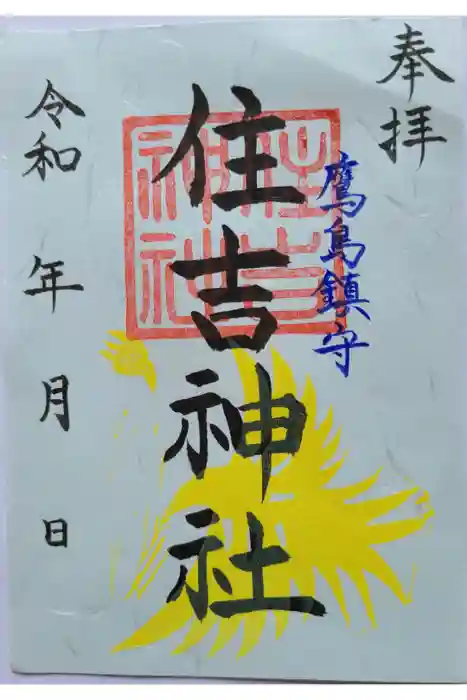 奉拝
鷹島鎮守
住吉神社
住吉神社
令和 年 月 日